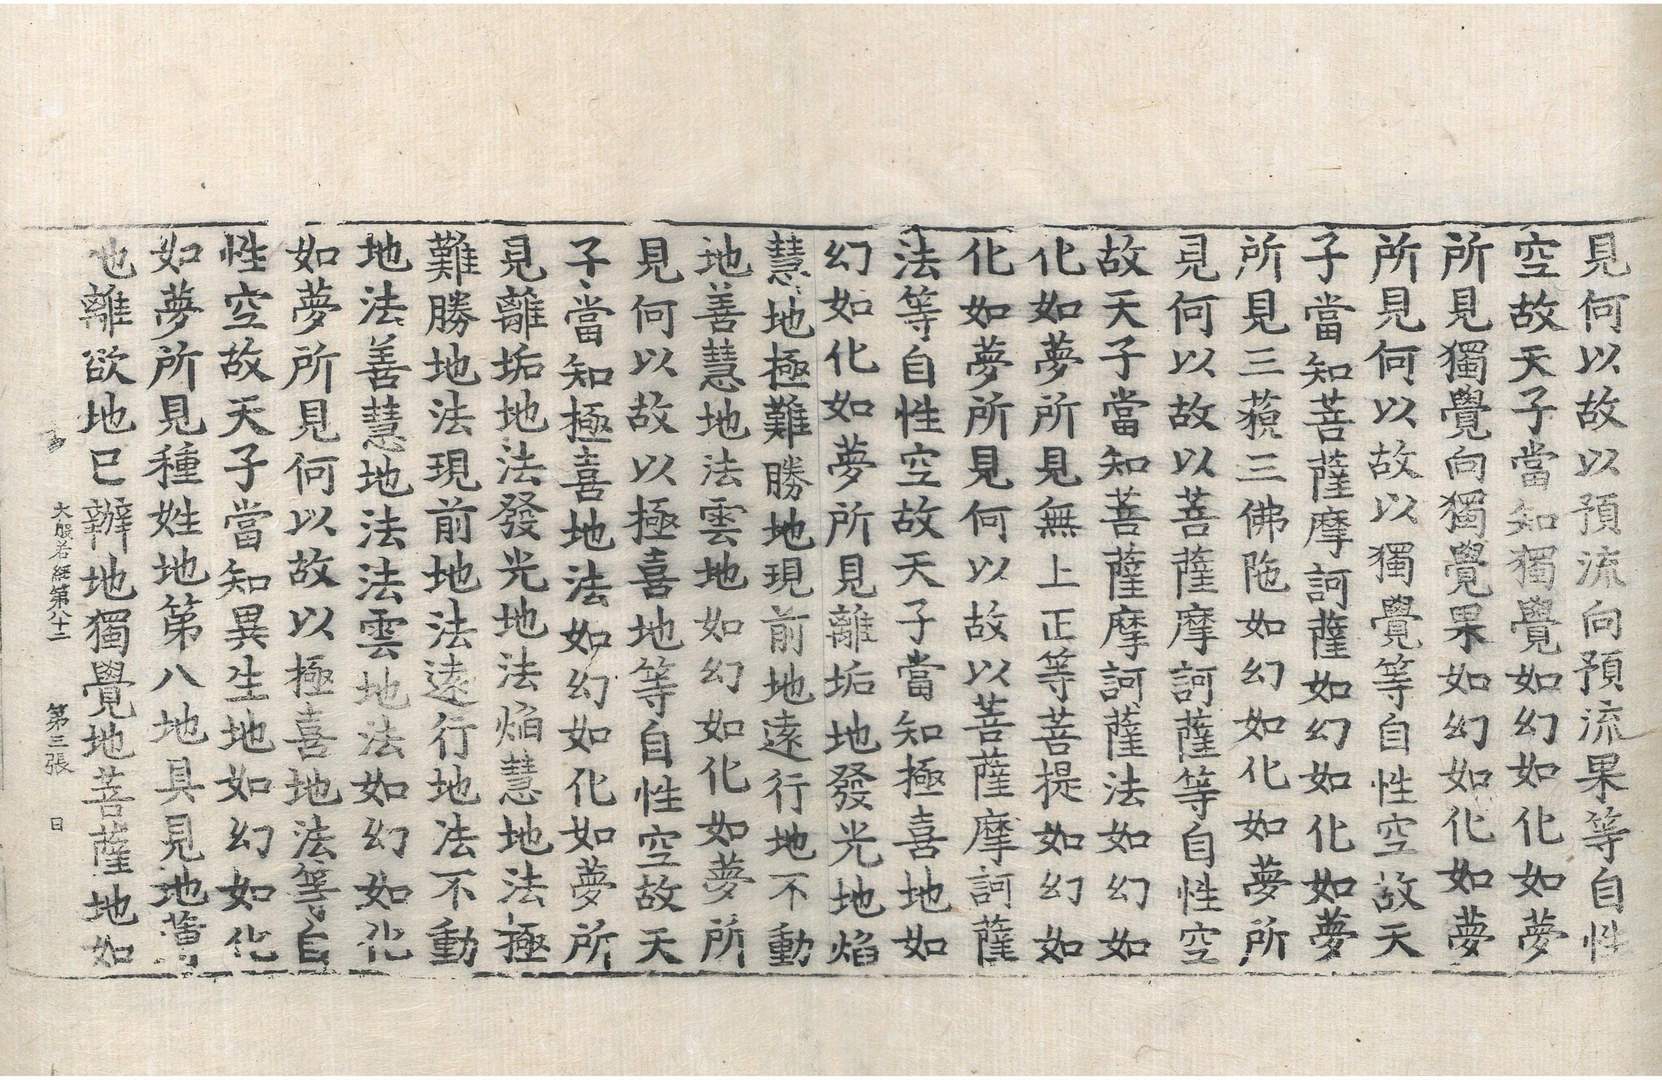 見何以故以預流向預流果等自性
空故天子當知獨覺如幻如化如夢
所見獨覺向獨覺果如幻如化如夢
所見何以故以獨覺等自性空故天
子當知菩薩摩訶薩如幻如化如夢
所見三藐三佛陁如幻如化如夢所
見何以故以菩薩摩訶薩等自性空
故天子當知菩薩摩訶薩法如幻如
化如夢所見無上正等菩提如幻如
化如夢所見何以故以菩薩摩訶薩
法等自性空故天子當知極喜地如
幻如化如夢所見離垢地發光地焰
慧地極難勝地現前地遠行地不動
地善慧地法雲地如幻如化如夢所
見何以故以極喜地等自性空故天
子當知極喜地法如幻如化如夢所
見離垢地法發光地法焰慧地法極
難勝地法現前地法遠行地法不動
地法善慧地法法雲地法如幻如化
如夢所見何以故以極喜地法等自
性空故天子當知異生地如幻如化
如夢所見種姓地第八地具見地薄
也離欲地已辦地獨覺地菩薩地如
大般若經第八十二 第三張 日